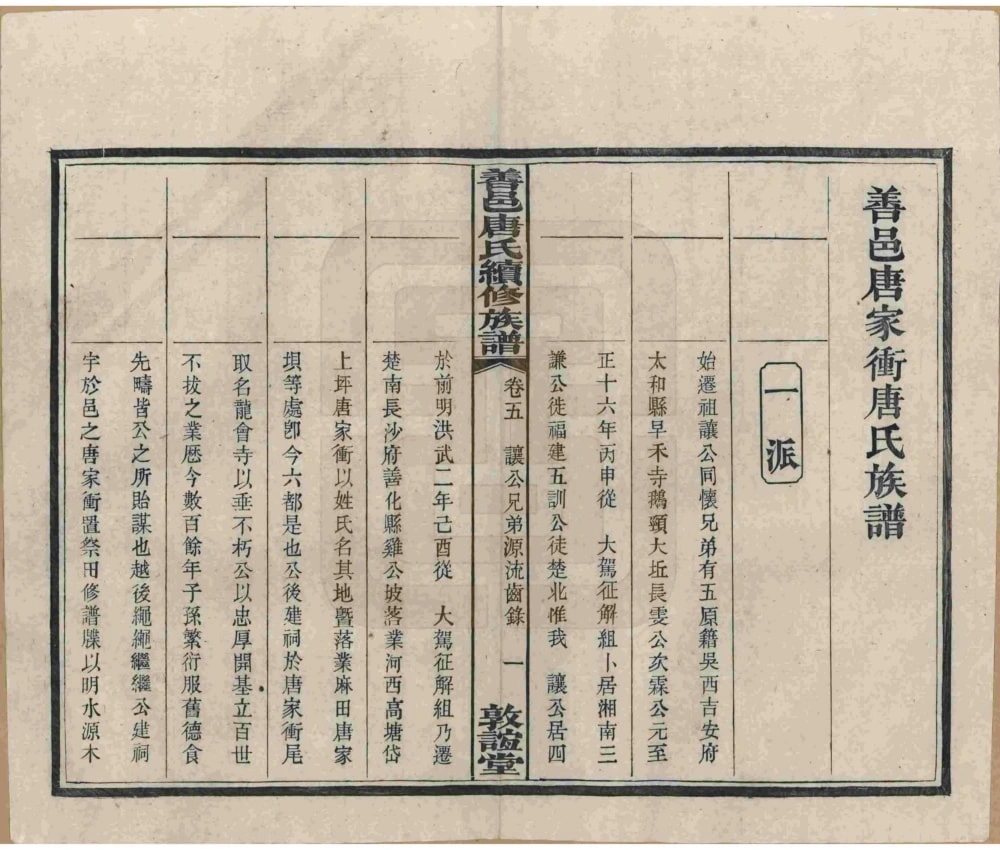 善邑唐家衝唐氏族譜
一派
始遷祖讓公同懷兄弟有五原籍吳西吉安府
太和縣早禾寺鵝頸大坵長雯公次霖公元至
正十六年丙申從　大駕征解組卜居湘南三
謙公徙福建五訓公徒楚北惟我　讓公居四
善邑唐氏續修族譜　卷五　讓公兄弟源流齒錄　一　敦誼堂
於前明洪武二年己酉從　大駕征解組乃遷
楚南長沙府善化縣雞公坡落業河西高塘岱
上坪唐家衝以姓氏名其地暨落業麻田唐家
垻等處卽今六都是也公後建祠於唐家衝尾
取名龍會寺以垂不朽公以忠厚開基立百世
不拔之業歷今數百餘年子孫繁衍服舊德食
先疇皆公之所貽謀也越後繩繩繼繼公建祠
宇於邑之唐家衝置祭田修譜牒以明水源木